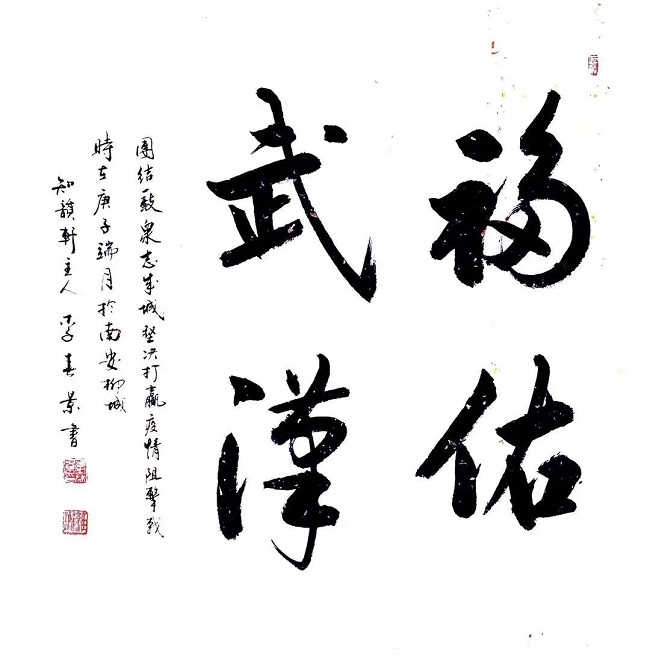 福佑
武漢
團结一致衆志成城坚决打贏疫情阻擊战
時在庚子端月於南安柳城
知韻軒主人李春景書